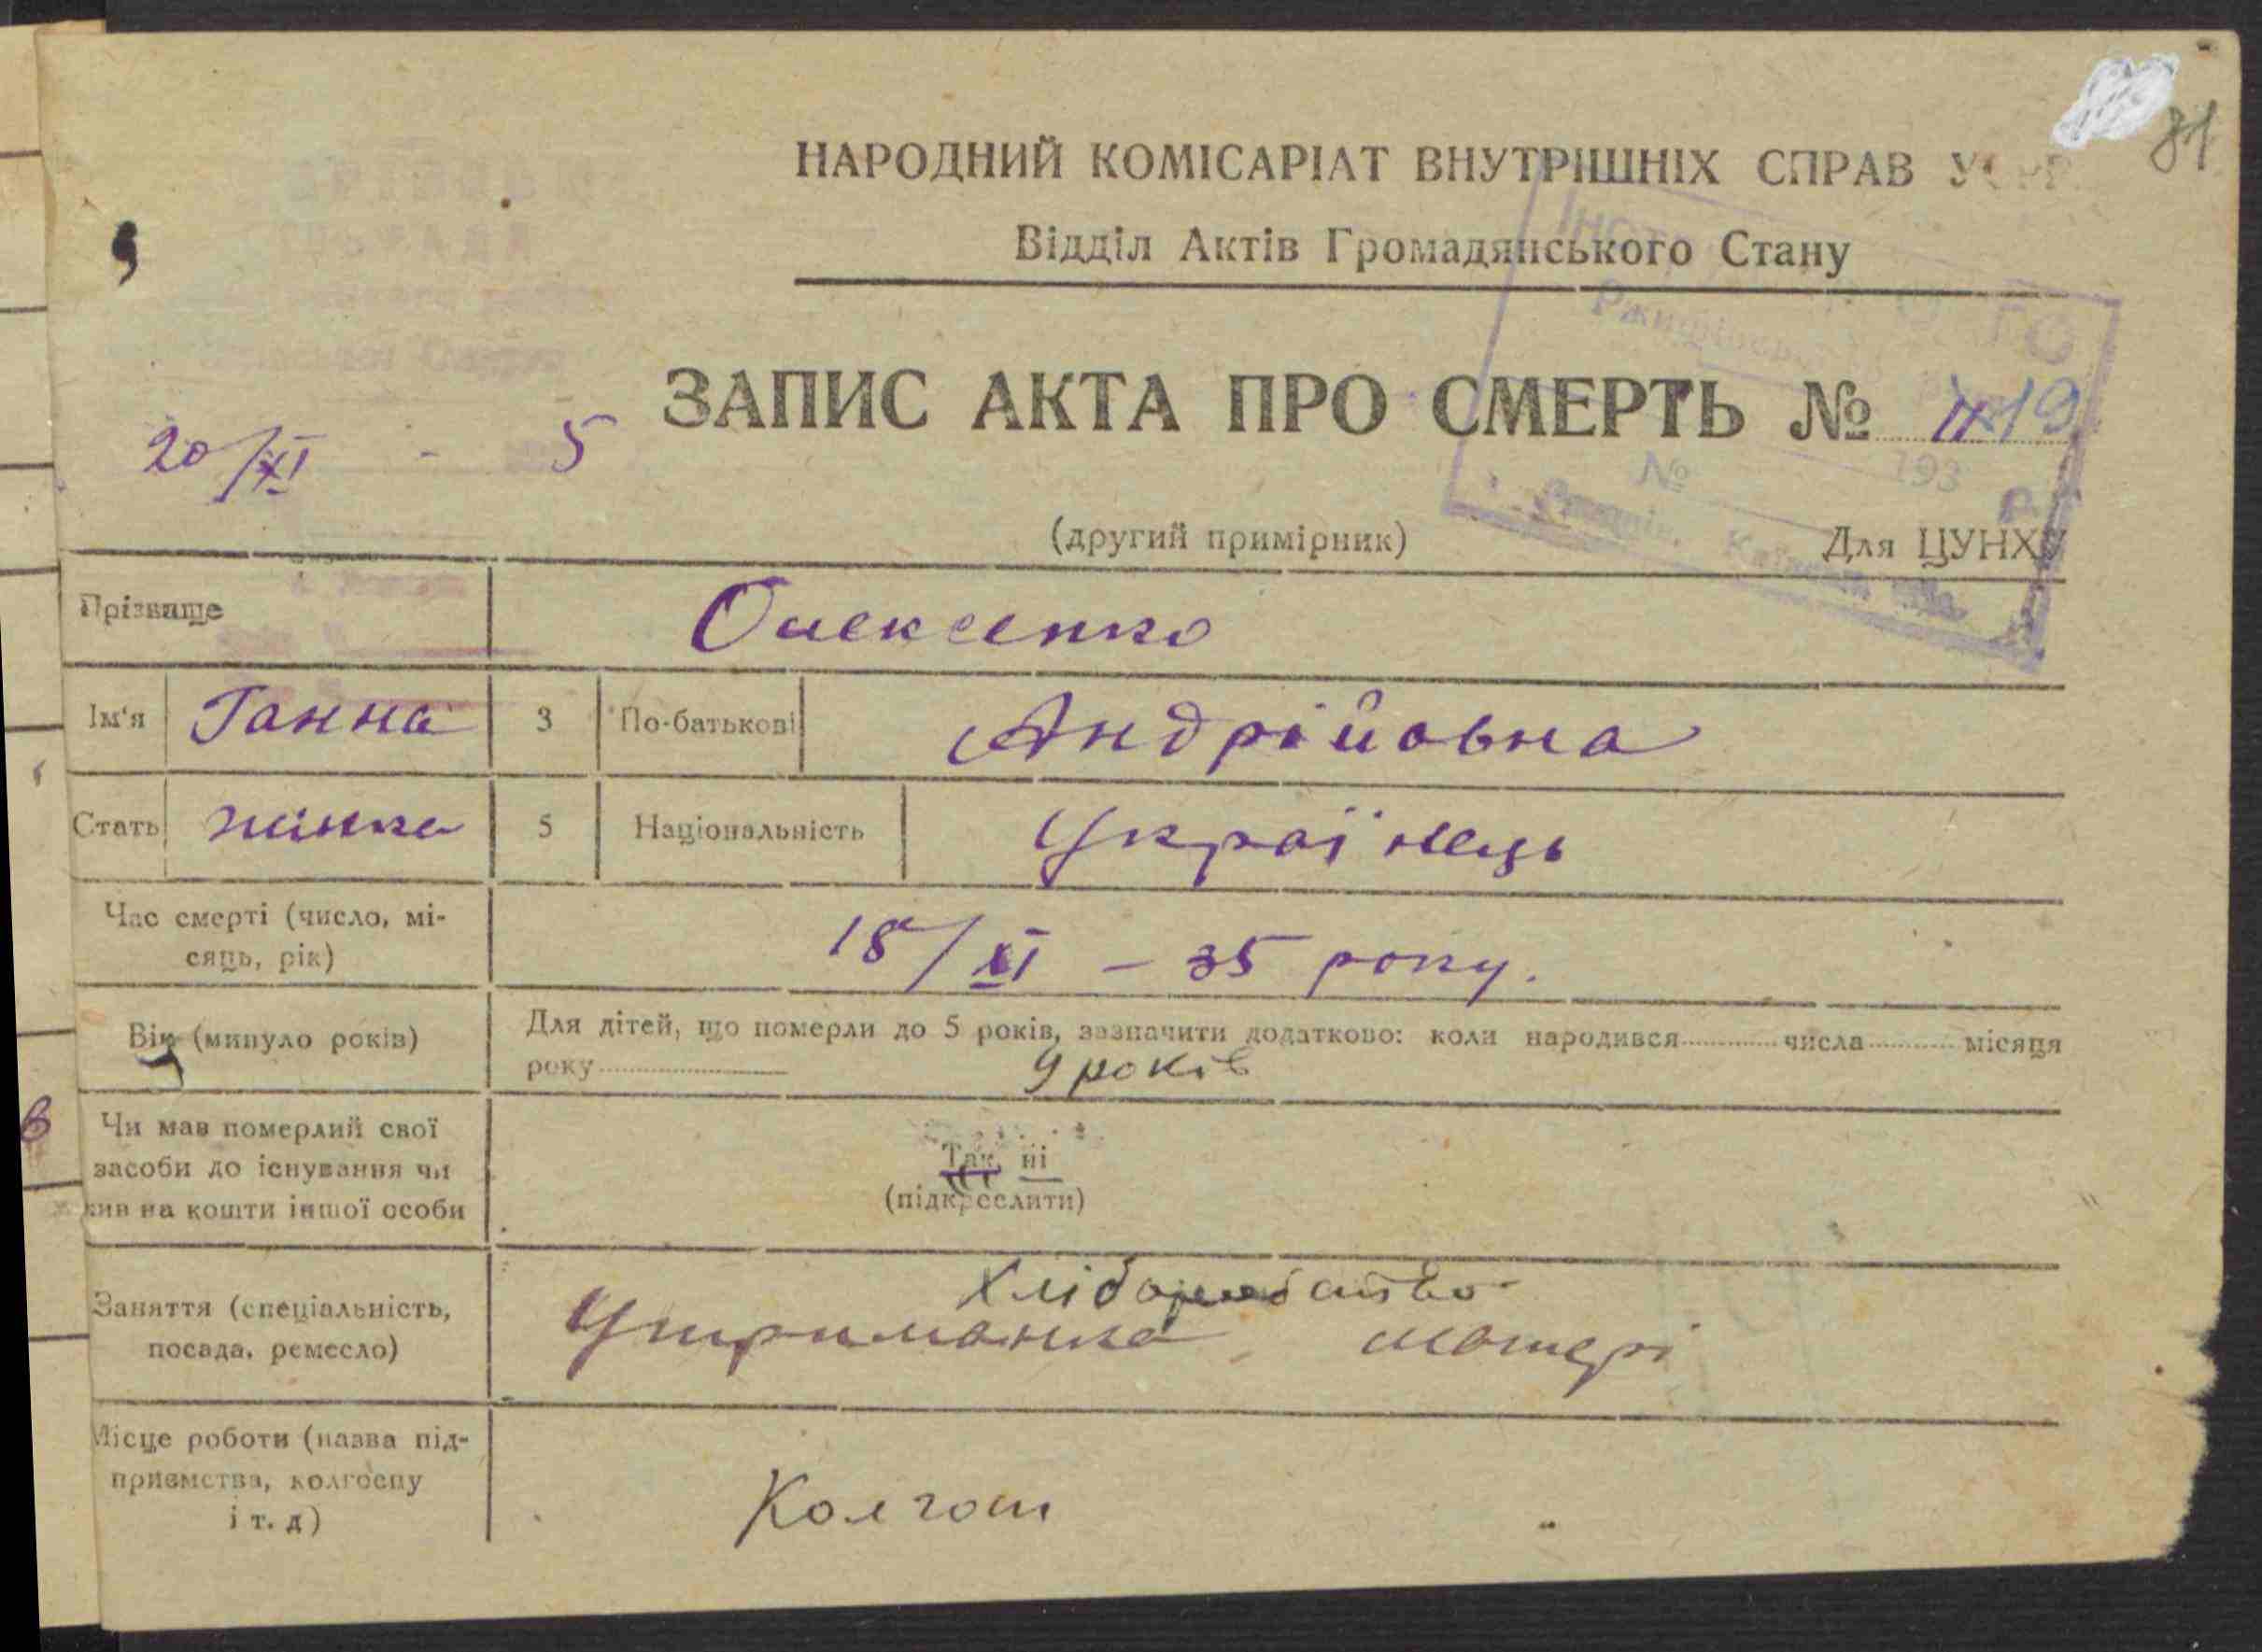 81
НАРОДНИЙ КОМІСАРІАТ ВНУТРІШНІХ СПРАВ
Відділ Актів Громадянського Стану
ЗАПИС АКТА ПРО СМЕРТЬ №
20/XI - 5
№ 193 р.
(другий примірник) Для ЦУНХУ
Прізвище Олексенко
Ім'я Ганна 3 По-батькові Андрійовна
Стать жінка 5 Національність Українець
Час смерті (число, мі-
сяць, рік)
18/XI - 35 року.
Вік (минуло років)
Для дітей, що померли до 5 років, зазначити додатково: коли народився числа місяця
року 9 років
Чи мав померлий свої
засоби до існування чи
жив на кошти іншої особи
Так, ні
(підкреслити)
Заняття (спеціальність,
посада, ремесло)
Хліборобство
Утриманка матері
Місце роботи (назва під-
приємства, колгоспу
і т. д)
Колгосп